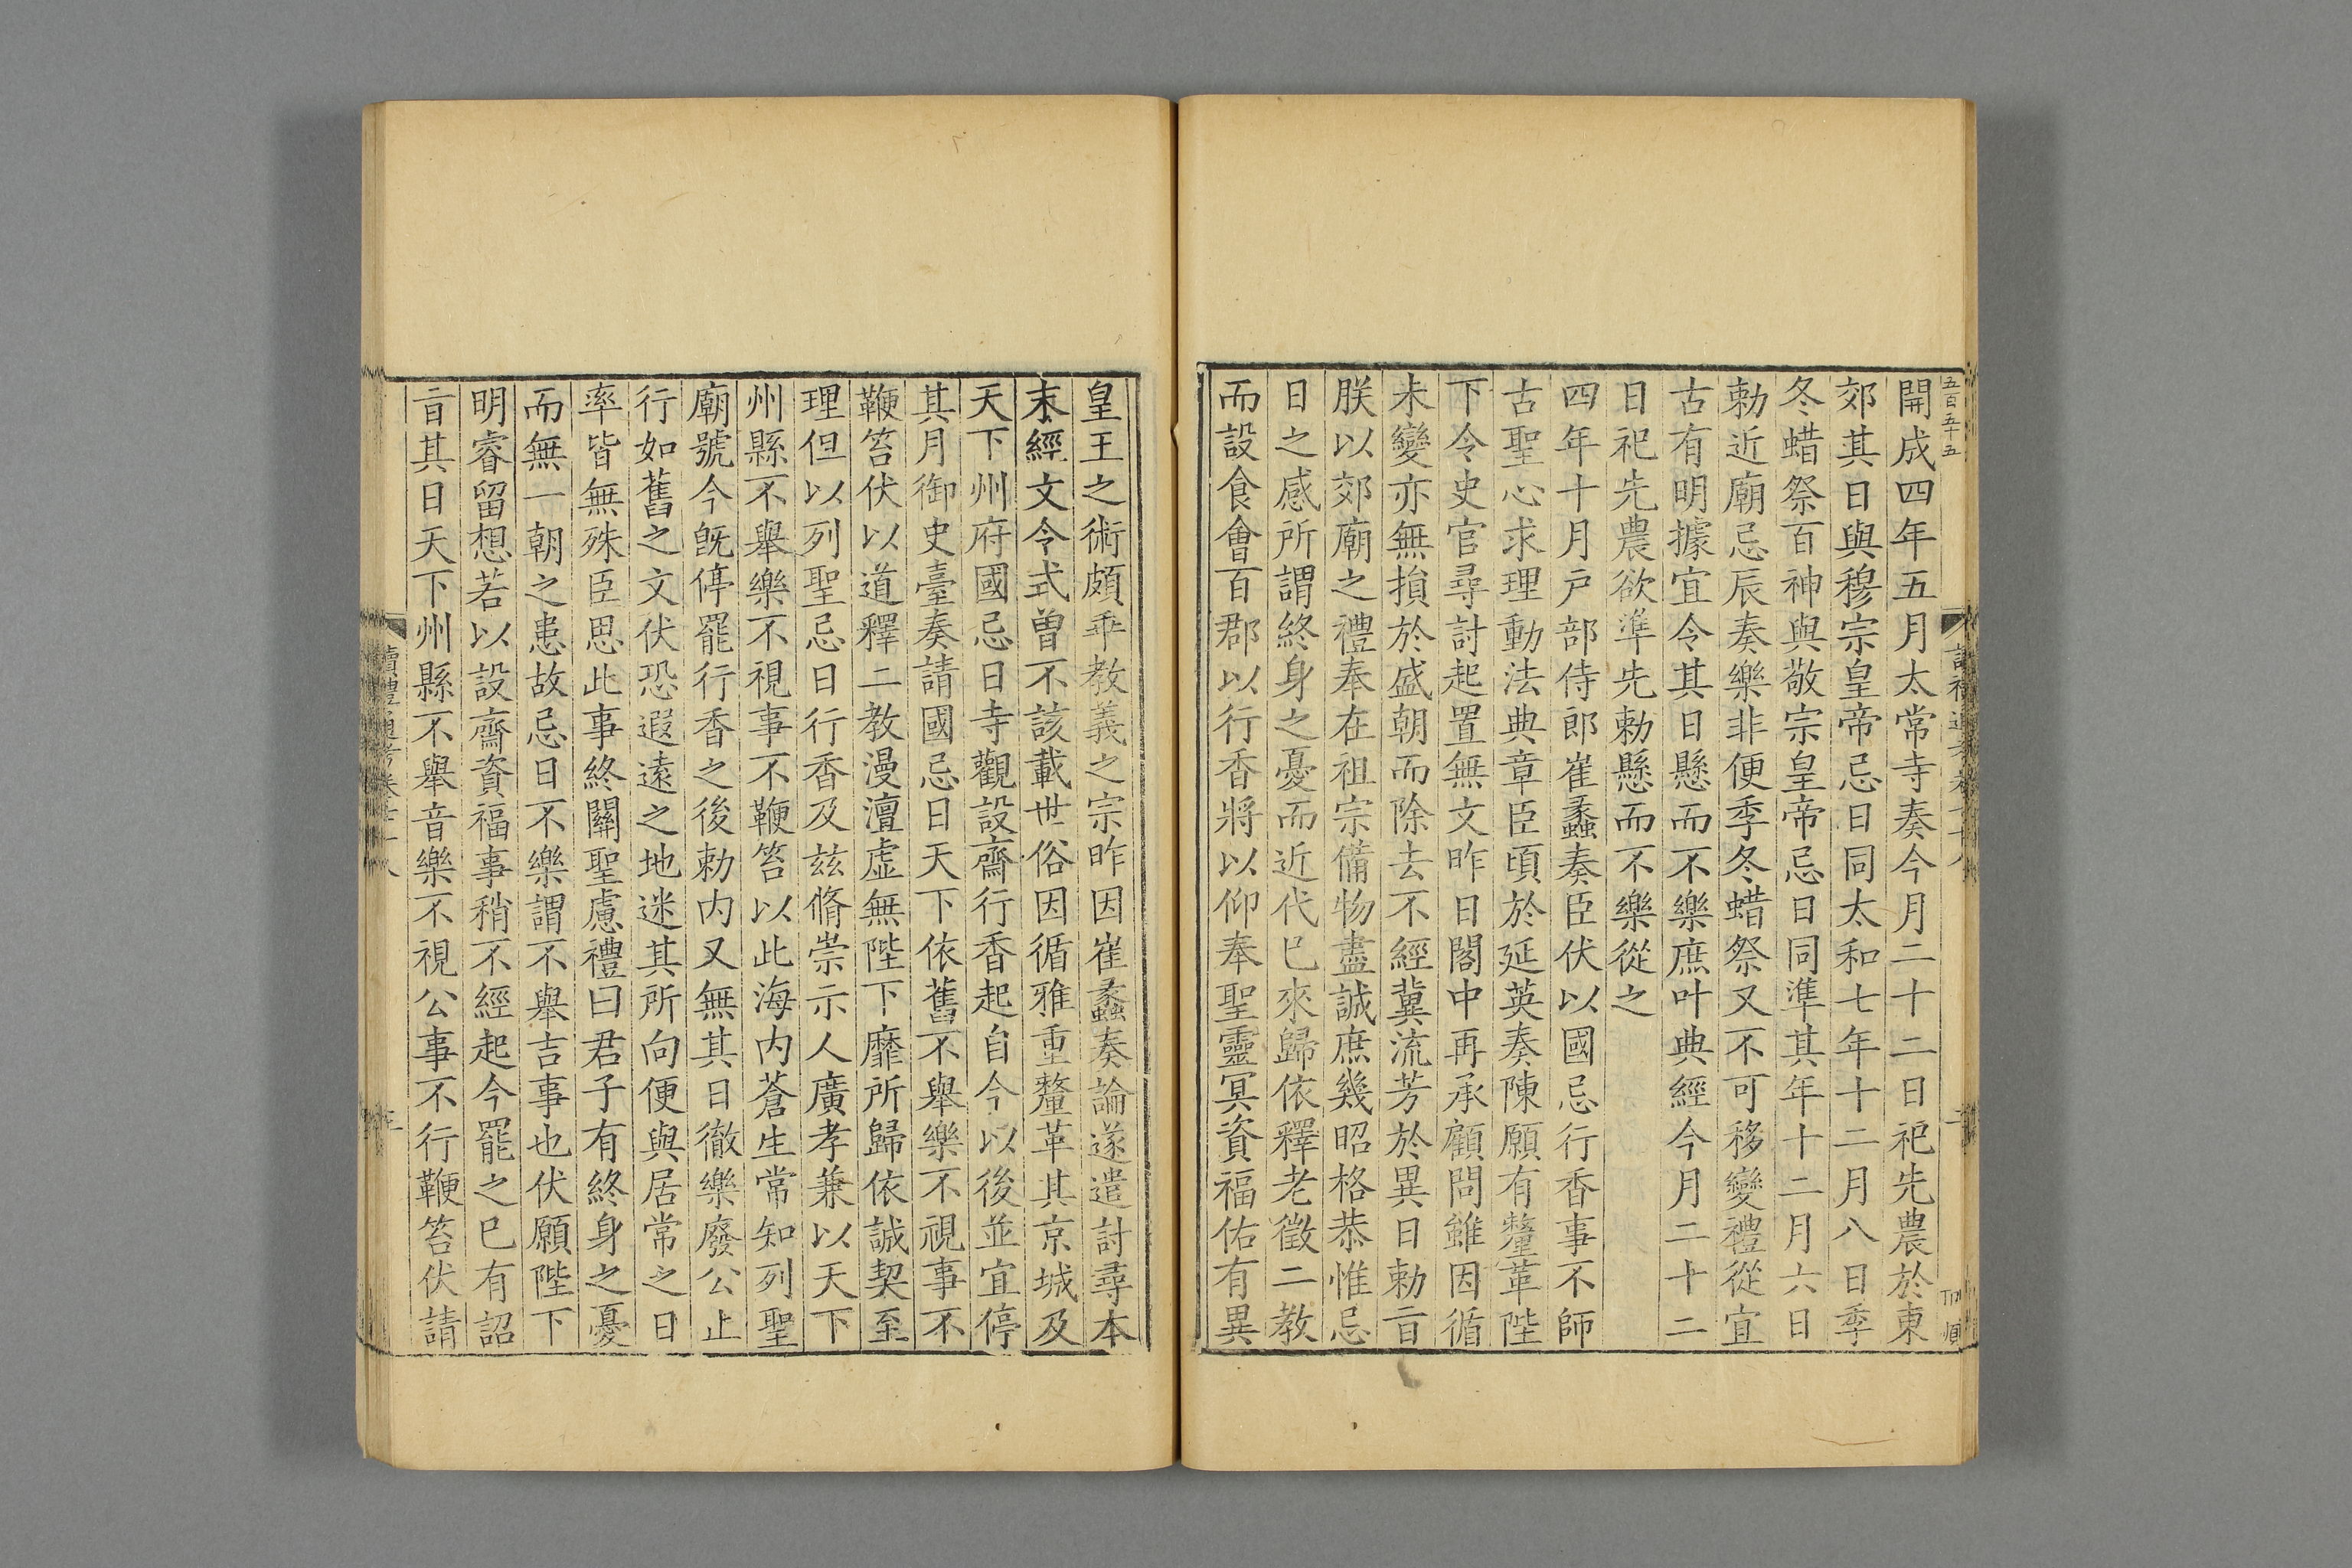 五百五十五
開成四年五月太常寺奏今月二十二日祀先農於東
郊其日與穆宗皇帝忌日同太和七年十二月八日季
冬蜡祭百神與敬宗皇帝忌日同準其年十二月六日
勅近廟忌辰奏樂非便季冬蜡祭又不可移變禮從宜
古有明據宜令其日懸而不樂庶叶典經今月二十二
日祀先農欲準先勅懸而不樂從之
四年十月戸部侍郎崔蠡奏臣伏以國忌行香事不師
古聖心求理動法典章臣頃於延英奏陳願有釐革陛
下令史官尋討起置無文昨日閣中再承顧問雖因循
未變亦無損於盛朝而除去不經冀流芳於異日勅㫖
朕以郊廟之禮奉在祖宗備物盡誠庶幾昭格恭惟忌
日之感所謂終身之憂而近代巳來歸依釋老徵二教
而設食會百郡以行香將以仰奉聖靈冥資福佑有異
皇王之術頗乖教義之宗昨因崔蠡奏論遂遣討尋本
末經文令式曾不該載世俗因循雅重釐革其京城及
天下州府國忌日寺觀設齋行香起自今以後並宜停
其月御史臺奏請國忌日天下依舊不舉樂不視事不
鞭笞伏以道釋二教漫澶虛無陛下靡所歸依誠契至
理但以列聖忌日行香及兹脩崇示人廣孝兼以天下
州縣不舉樂不視事不鞭笞以此海内蒼生常知列聖
廟號今旣停罷行香之後勅内又無其日徹樂廢公止
行如舊之文伏恐遐遠之地迷其所向便與居常之日
率皆無殊臣思此事終關聖慮禮曰君子有終身之憂
而無一朝之患故忌日不樂謂不舉吉事也伏願陛下
明睿留想若以設齋資福事稍不經起今罷之巳有詔
㫖其日天下州縣不舉音樂不視公事不行鞭笞伏請
讀禮通考卷